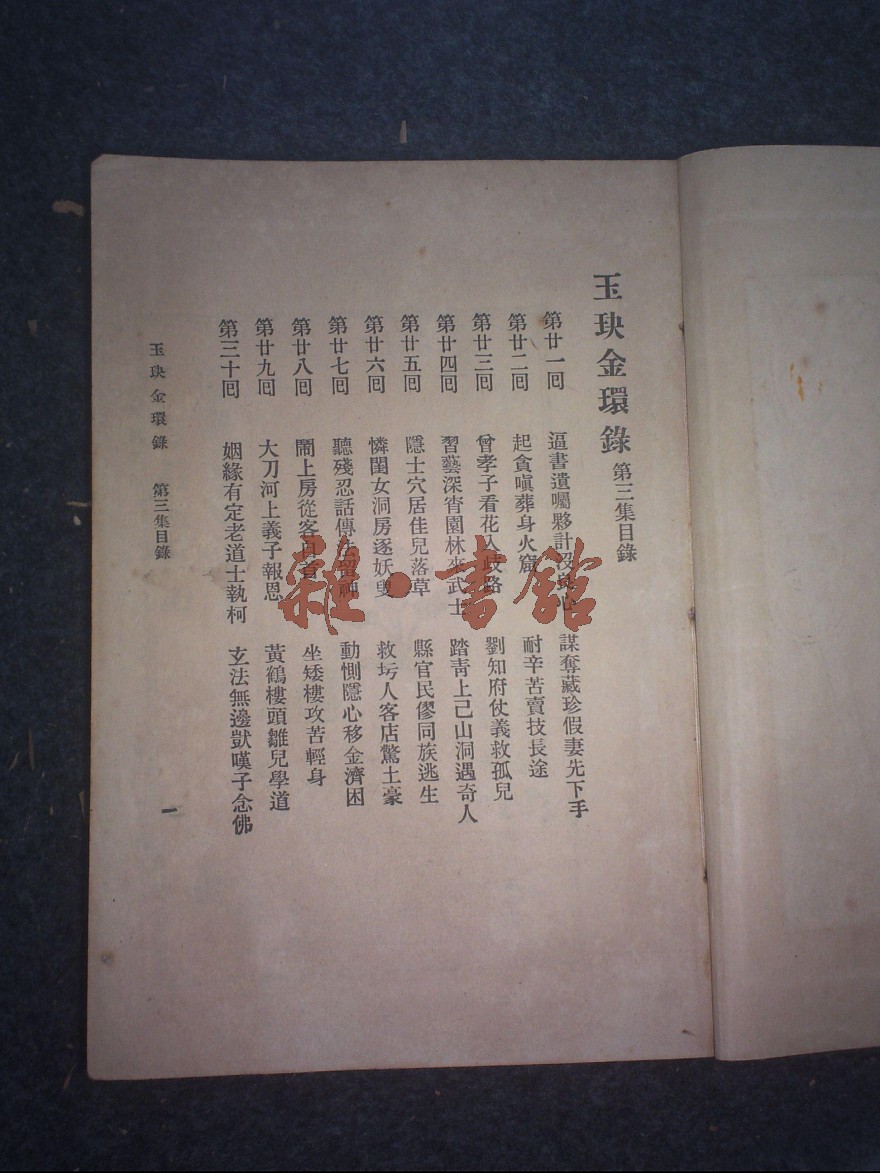 玉玦金環錄 第三集目錄
第廿一回 逼書遺囑夥計沒良心 謀奪藏珍假妻先下手
第廿二回 起貪嗔葬身火窟 耐辛苦賣技長途
第廿三回 曾孝子看花入歧路 劉知府仗義救孤兒
第廿四回 習藝深宵園林來武士 踏青上己山洞遇奇人
第廿五回 隱士穴居佳兒落草 縣官民僇同族逃生
第廿六回 憐閨女洞房逐妖叟 救圬人客店驚土豪
第廿七回 聽殘忍話傳法留神 動惻隱心移金濟困
第廿八回 鬧上房從客自首 坐矮樓攻苦輕身
第廿九回 大刀河上義子報恩 黃鶴樓頭雛兒學道
第三十回 姻緣有定老道士執柯 玄法無邊獃嘆子念佛
玉玦金環錄 第三集目錄
一
雜·書館